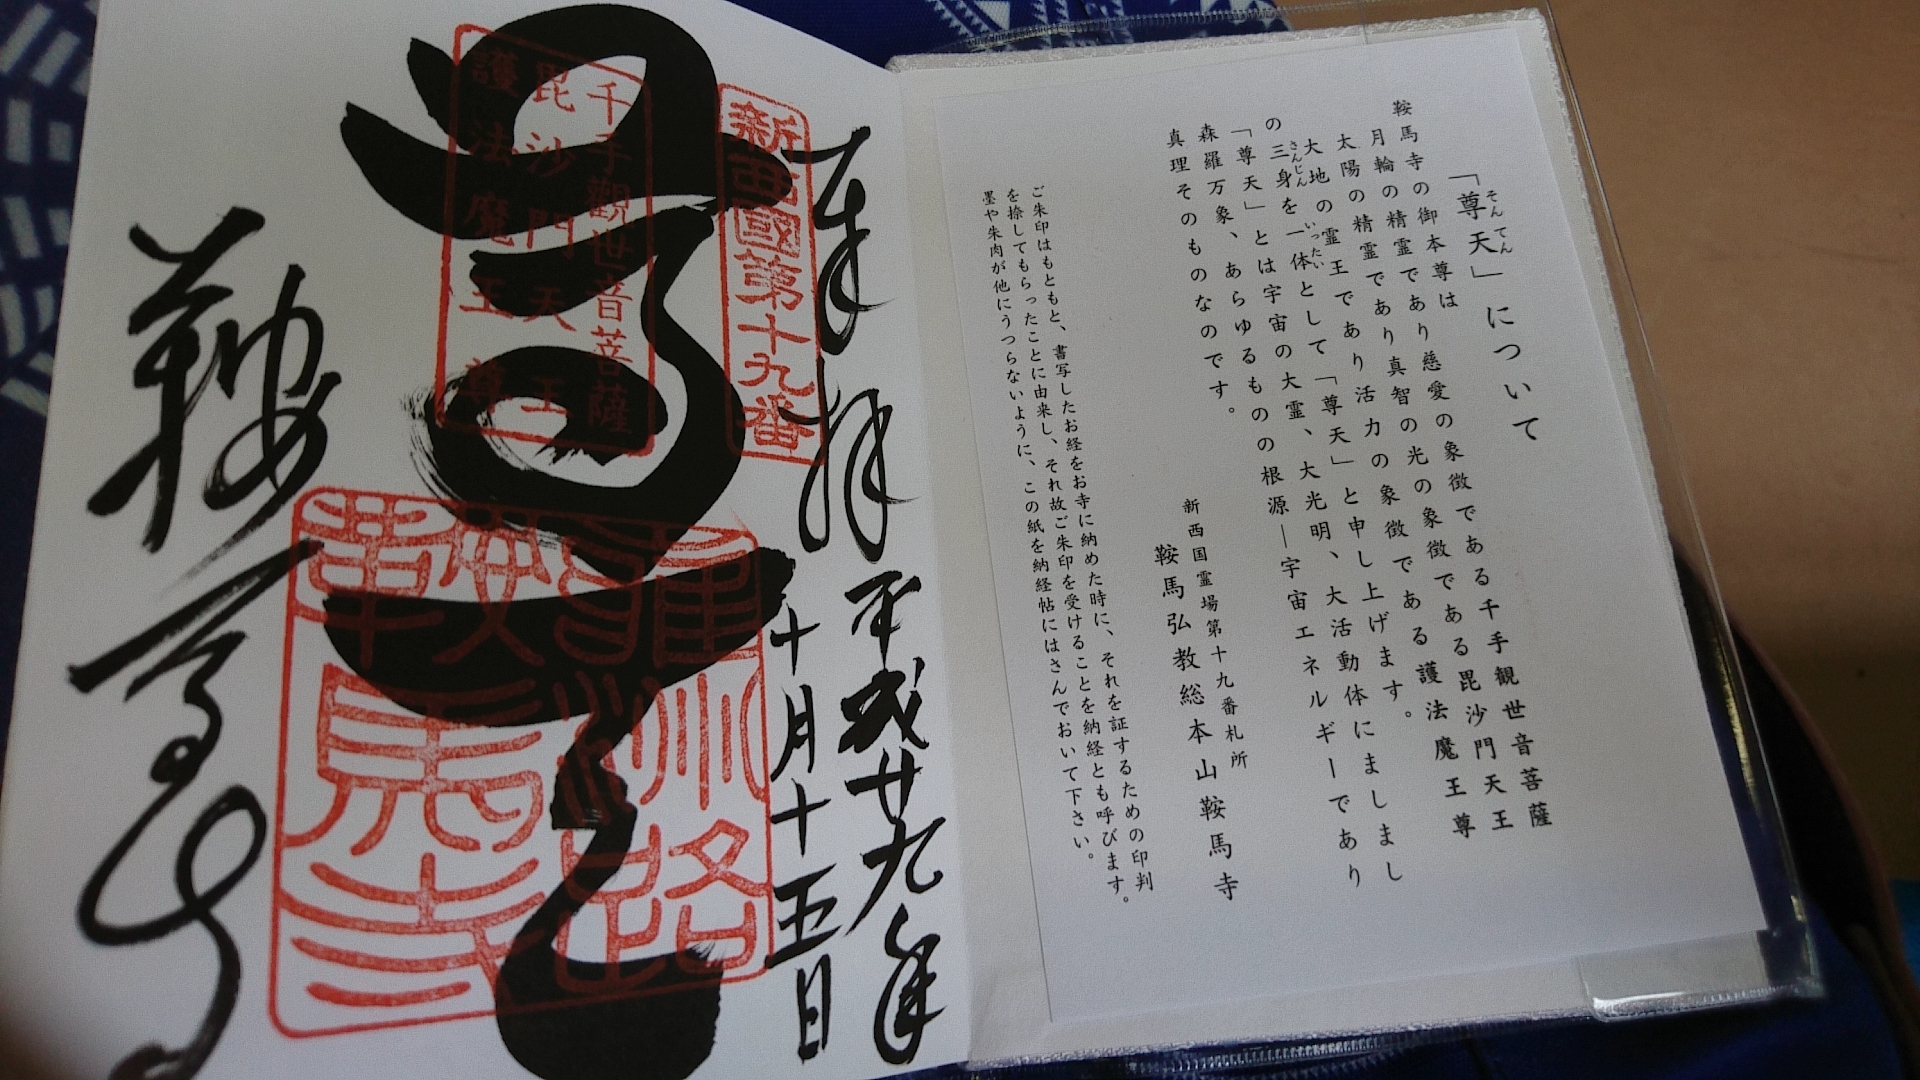 「尊天」について
そんてん
鞍馬寺の御本尊は
月輪の精霊であり慈愛の象徴である千手観世音菩薩
太陽の精霊であり真智の光の象徴である毘沙門天王
大地の霊王であり活力の象徴である護法魔王尊
の三身を一体として「尊天」と申し上げます。
さんじん
いったい
「尊天」とは宇宙の大霊、大光明、大活動体にましまし
森羅万象、あらゆるものの根源―宇宙エネルギーであり
真理そのものなのです。
新西国霊場第十九番札所
鞍馬弘教総本山鞍馬寺
ご朱印はもともと、書写したお経をお寺に納めた時に、それを証するための印判
を捺してもらったことに由来し、それ故ご朱印を受けることを納経とも呼びます。
墨や朱肉が他にうつらないように、この紙を納経帖にはさんでおいて下さい。
奉拝
平成廿九年
十月十五日
新西國第十九番
千手觀世音菩薩
毘沙門天王
護法魔王尊
尊天
雍州路
鞍馬寺
鞍馬寺